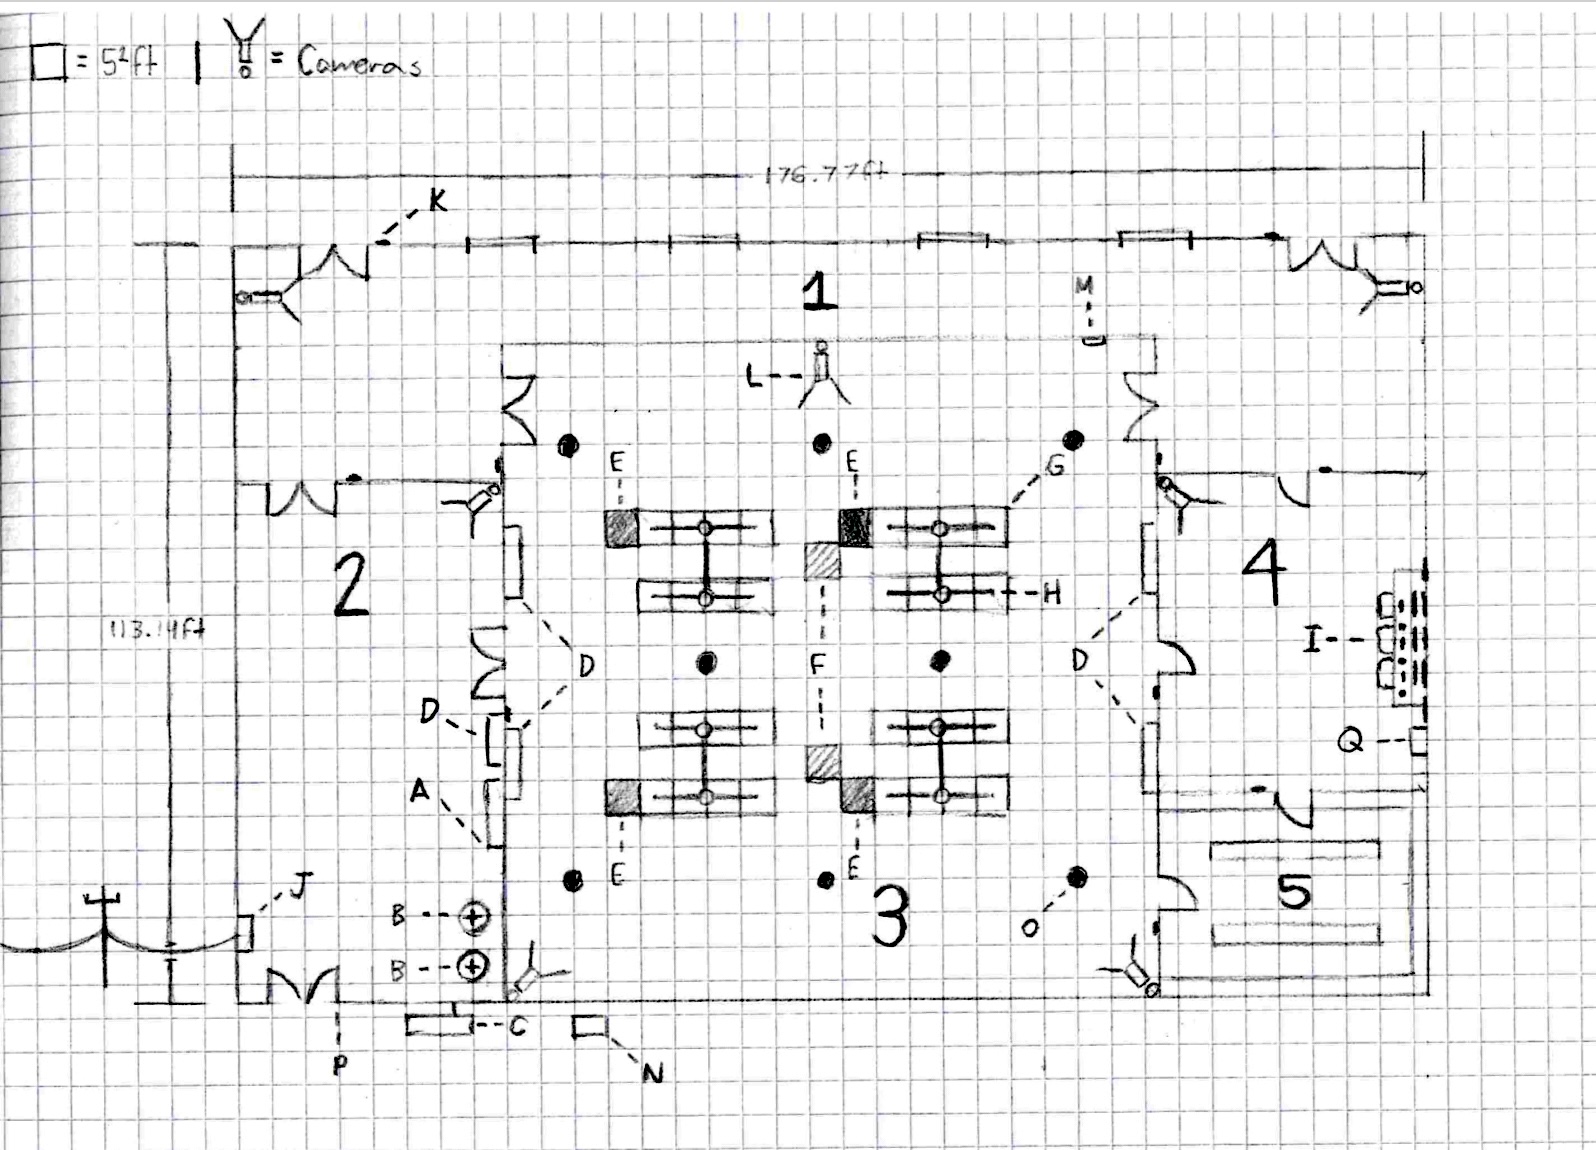 = 5²ft | = Cameras
176.77ft
K
1
M
L
E E G
2 4
H
113.14ft I
D F D
D
Q
A
J E E 5
B 3
O
B
C
P N